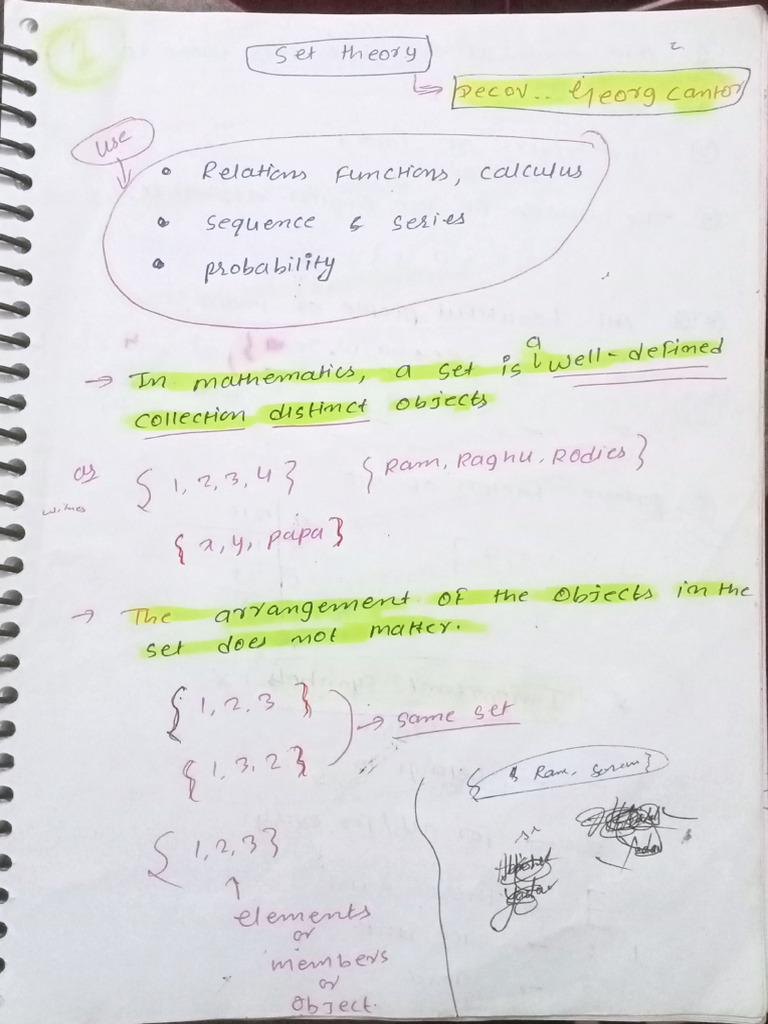 1
Set theory
Decov.. Georg Cantor
Use
• Relations Functions, calculus
• Sequence & series
• probability
→ In mathematics, a set is a well-defined
collection distinct objects
as { 1, 2, 3, 4 } { Ram, Raghu, Rodies }
{ x, y, papa }
→ The arrangement of the objects in the
set does not matter.
{ 1, 2, 3 }
→ same set
{ 1, 3, 2 }
{ Ram, }
{ 1, 2, 3 }
↑
elements
or
members
or
object.